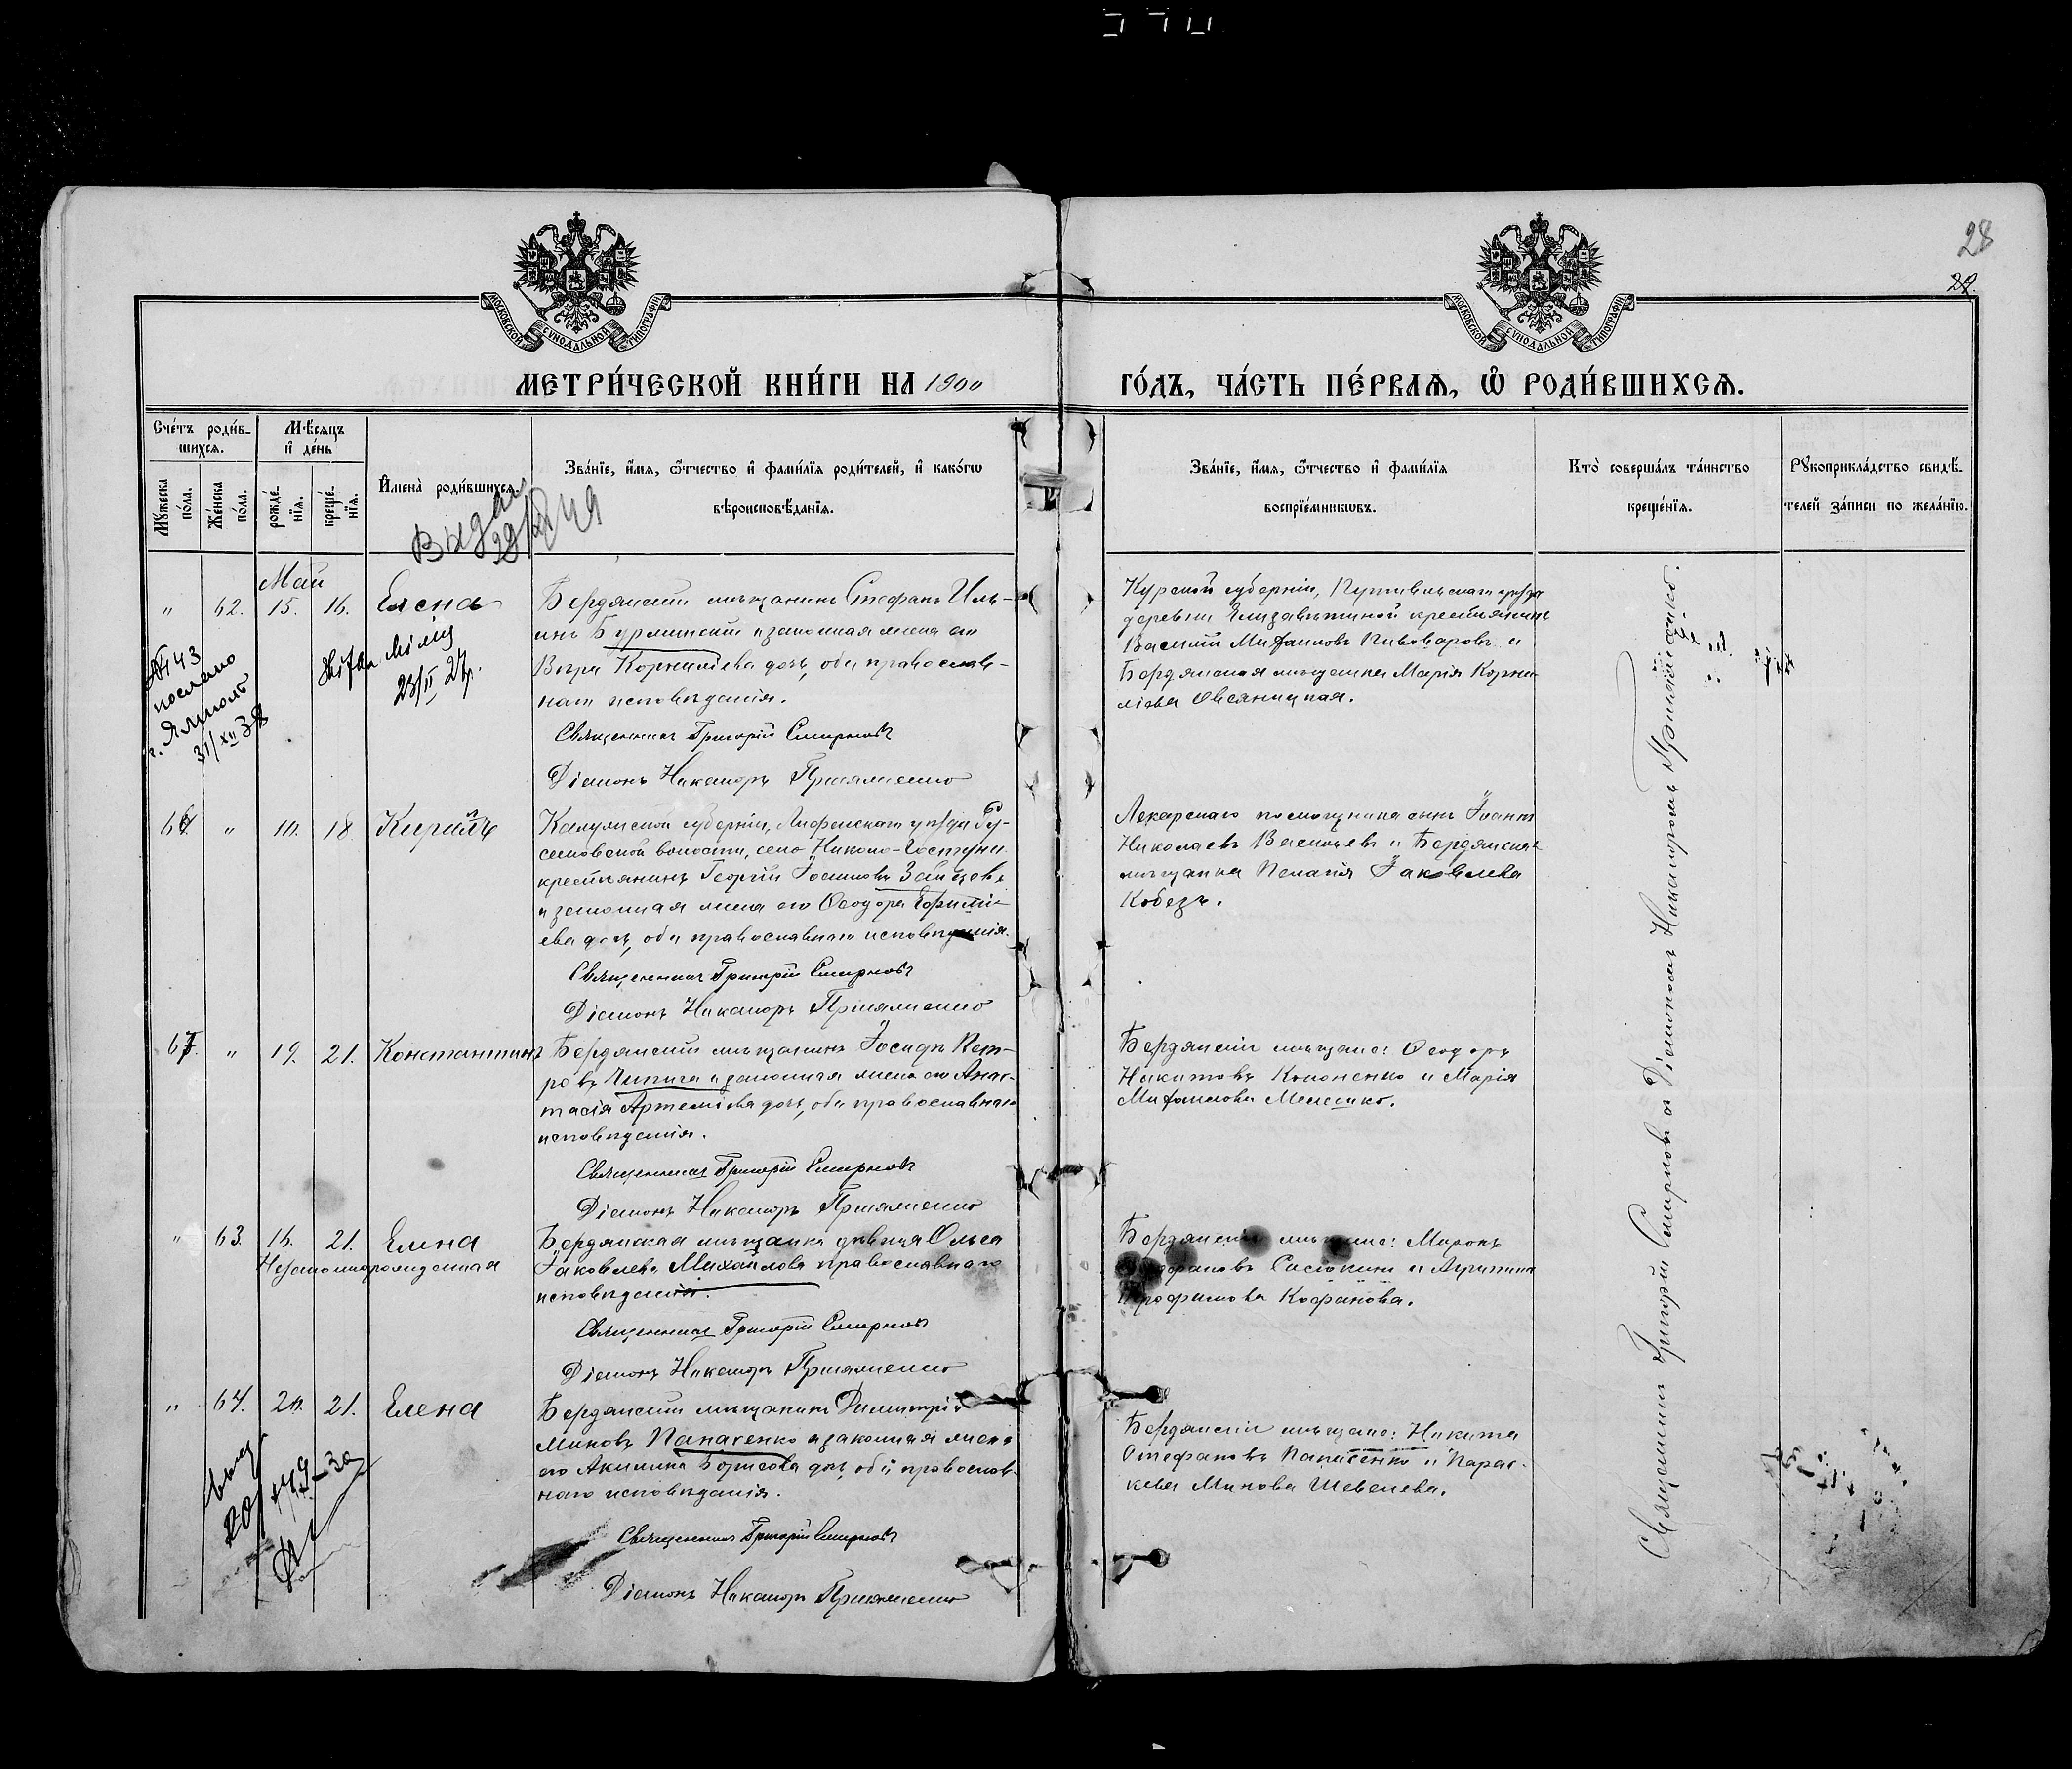 28
29.
МОСКОВСКОЙ СѴНОДАЛЬНОЙ ТИПОГРАФІИ
МОСКОВСКОЙ СѴНОДАЛЬНОЙ ТИПОГРАФІИ
МЕТРИ́ЧЕСКОЙ КНИ́ГИ НА 1900
ГО́ДЪ, ЧА́СТЬ ПЕ́РВАѦ, Ѡ҆ РОДИ́ВШИХСѦ.
Сче́тъ роди́в-
шихсѧ.
Мѣ́сѧцъ
и҆ де́нь
Мꙋ́жеска
по́ла.
Же́нска
по́ла.
рожде́-
нїѧ.
креще́-
нїѧ.
И҆мена̀ роди́вшихсѧ.
Зва́нїе, и҆́мѧ, ѻ҆́тчество и҆ фами́лїѧ роди́телей, и҆ како́гѡ
вѣроисповѣ́данїѧ.
Зва́нїе, и҆́мѧ, ѻ҆́тчество и҆ фами́лїѧ
воспрїе́мникѡвъ.
Кто̀ соверша́лъ та́инство
креще́нїѧ.
Рꙋкоприкла́дство свидѣ́-
телей за́писи по жела́нїю.
Май
" 62. 15. 16. Елена
Бердянский мѣщанинъ Стефанъ Иль-
инъ Бурлинский и законная жена его
Вѣра Корнилієва дочь, оба православ-
наго исповѣданія.
Священникъ Григорій Смирновъ
Діаконъ Никаноръ
Курской губерніи, Путивльскаго уѣзда
деревни Елизаветиной крестьянинъ
Василій Михаиловъ Пивоваровъ и
Бердянская мѣщанка Марія Корни-
ліева Овсяницкая.
№143
послано
31/XII 38
23/II 27.
66 " 10. 18. Кириллъ
Калужской губерніи, Лихвинскаго уѣзда
волости, село Николо-Гостуни
крестьянинъ Георгій Зайцевъ
и законная жена его Ѳеодора Ефимі-
ева дочь, оба православнаго исповѣданія.
Священникъ Григорій Смирновъ
Діаконъ Никаноръ
Лекарскаго помощника сынъ Іоаннъ
Николаевъ Васильевъ и Бердянская
мѣщанка Пелагія Іаковлева
Кобезь.
67. " 19. 21. Константинъ
Бердянский мѣщанинъ Іосифъ Пет-
ровъ и законная жена его Анас-
тасія Артеміева дочь, оба православнаго
исповѣданія.
Священникъ Григорій Смирновъ
Діаконъ Никаноръ
Бердянскіи мѣщане: Ѳеодоръ
Никитовъ Кононенко и Марія
Михаилова Мелешко.
" 63. 16. 21. Елена
Незаконнорожденная
Бердянская мѣщанка дѣвица Ольга
Іаковлева Михайлова православнаго
исповѣданія.
Священникъ Григорій Смирновъ
Діаконъ Никаноръ
Бердянскіи мѣщане: Миронъ
и Агрипина
Трофимова Кофанова.
" 64. 20. 21. Елена
Бердянский мѣщанинъ Димитрій
Миновъ Панасенко и законная жена
его Акилина Борисова дочь, оба православ-
наго исповѣданія.
Священникъ Григорій Смирновъ
Діаконъ Никаноръ
Бердянскіи мѣщане: Никита
Стефановъ Панасенко и Парас-
кева Минова Шевелева.
Священникъ Григорій Смирновъ и Діаконъ Никаноръ